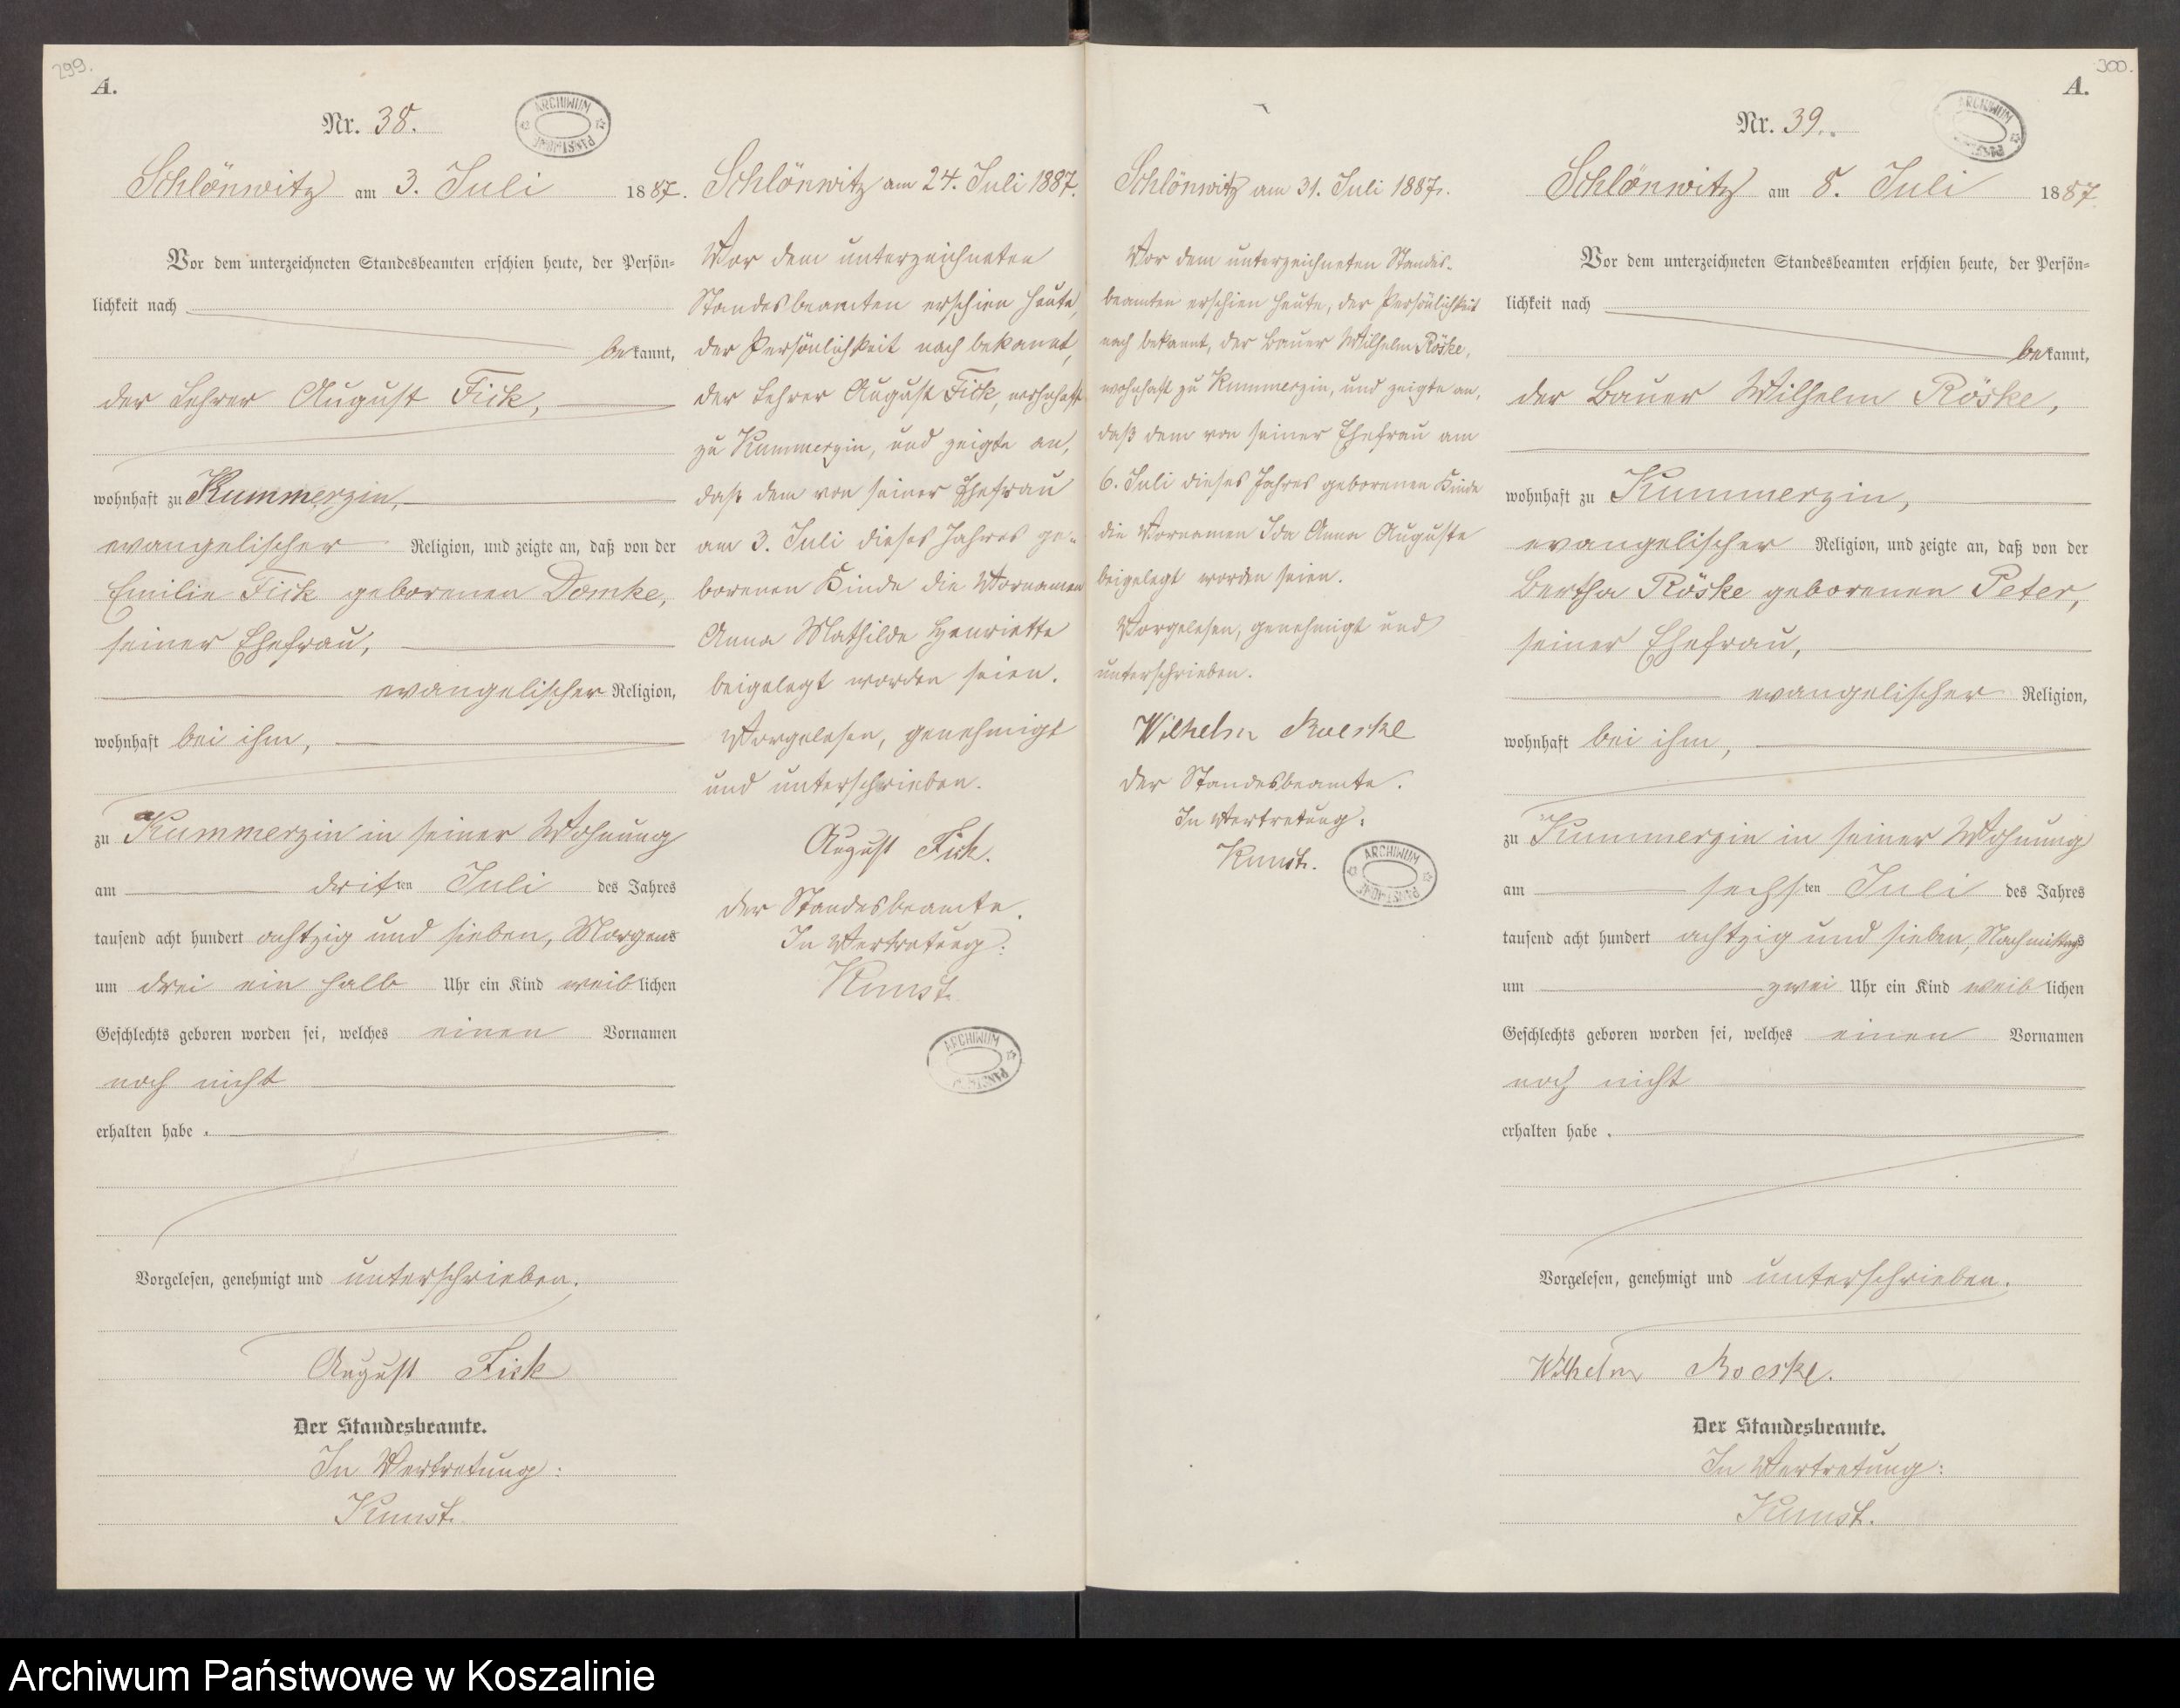 299.
A.
Nr. 38.
ARCHIWUM PAŃSTWOWE
Schlönwitz am 3. Juli 1887.
Vor dem unterzeichneten Standesbeamten erschien heute, der Persön=
lichkeit nach
bekannt,
der Lehrer August Fick,
wohnhaft zu Kummerzin,
evangelischer Religion, und zeigte an, daß von der
Emilie Fick geborenen Domke,
seiner Ehefrau,
evangelischer Religion,
wohnhaft bei ihm,
zu Kummerzin in seiner Wohnung
am dritten Juli des Jahres
tausend acht hundert achtzig und sieben, Morgens
um drei ein halb Uhr ein Kind weiblichen
Geschlechts geboren worden sei, welches einen Vornamen
noch nicht
erhalten habe.
Vorgelesen, genehmigt und unterschrieben.
August Fick
Der Standesbeamte.
In Vertretung:
Kunst.
Schlönwitz am 24. Juli 1887.
Vor dem unterzeichneten
Standesbeamten erschien heute,
der Persönlichkeit nach bekannt,
der Lehrer August Fick, wohnhaft
zu Kummerzin, und zeigte an,
daß dem von seiner Ehefrau
am 3. Juli dieses Jahres ge-
borenen Kinde die Vornamen
Anna Mathilde Henriette
beigelegt worden seien.
Vorgelesen, genehmigt
und unterschrieben.
August Fick.
Der Standesbeamte.
In Vertretung:
Kunst.
ARCHIWUM PAŃSTWOWE
Schlönwitz am 31. Juli 1887.
Vor dem unterzeichneten Standes-
beamten erschien heute, der Persönlichkeit
nach bekannt, der Bauer Wilhelm Röske,
wohnhaft zu Kummerzin, und zeigte an,
daß dem von seiner Ehefrau am
6. Juli dieses Jahres geborenen Kinde
die Vornamen Ida Anna Auguste
beigelegt worden seien.
Vorgelesen, genehmigt und
unterschrieben.
Wilhelm Roeske
Der Standesbeamte.
In Vertretung:
Kunst.
ARCHIWUM PAŃSTWOWE
300.
A.
Nr. 39.
ARCHIWUM PAŃSTWOWE
Schlönwitz am 8. Juli 1887.
Vor dem unterzeichneten Standesbeamten erschien heute, der Persön=
lichkeit nach
bekannt,
der Bauer Wilhelm Röske,
wohnhaft zu Kummerzin,
evangelischer Religion, und zeigte an, daß von der
Bertha Röske geborenen Peter,
seiner Ehefrau,
evangelischer Religion,
wohnhaft bei ihm,
zu Kummerzin in seiner Wohnung
am sechsten Juli des Jahres
tausend acht hundert achtzig und sieben, Nachmittags
um zwei Uhr ein Kind weiblichen
Geschlechts geboren worden sei, welches einen Vornamen
noch nicht
erhalten habe.
Vorgelesen, genehmigt und unterschrieben.
Wilhelm Roeske.
Der Standesbeamte.
In Vertretung:
Kunst.
Archiwum Państwowe w Koszalinie